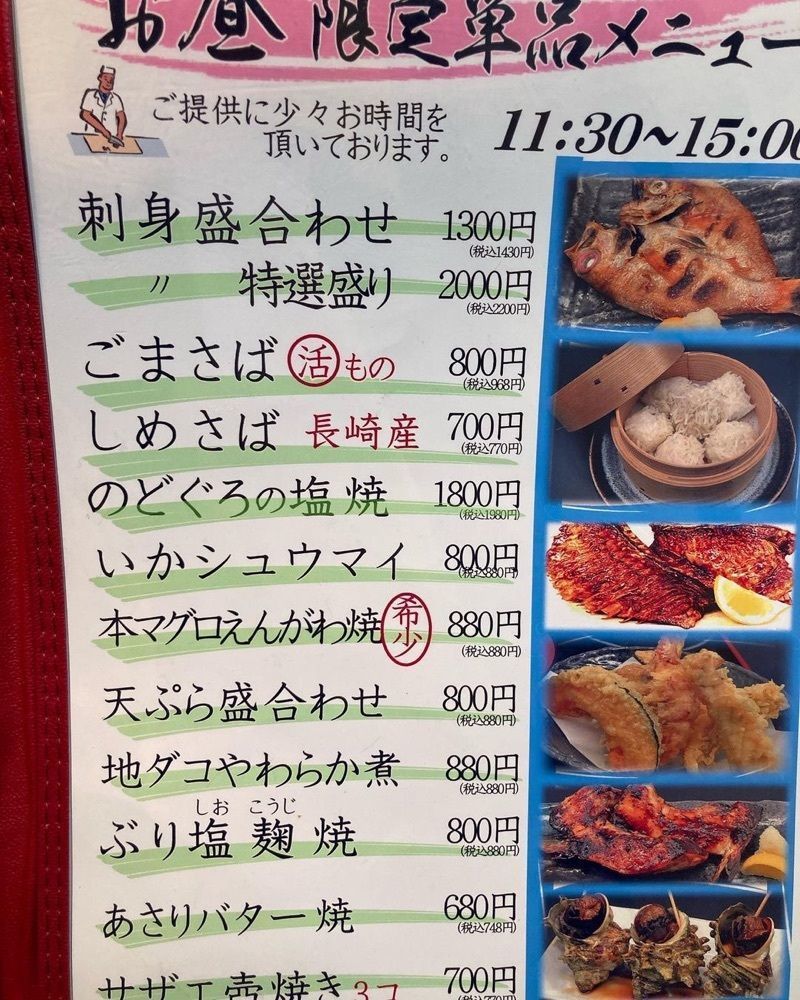 お昼限定単品メニュー
ご提供に少々お時間を
頂いております。
11:30～15:00
刺身盛合わせ 1300円
(税込1430円)
〃 特選盛り 2000円
(税込2200円)
ごまさば 活もの 800円
(税込968円)
しめさば 長崎産 700円
(税込770円)
のどぐろの塩焼 1800円
(税込1980円)
いかシュウマイ 800円
(税込880円)
本マグロえんがわ焼 希少 880円
(税込880円)
天ぷら盛合わせ 800円
(税込880円)
地ダコやわらか煮 880円
(税込880円)
しお こうじ
ぶり塩麹焼 800円
(税込880円)
あさりバター焼 680円
(税込748円)
サザエ壺焼き 3コ 700円
(税込770円)